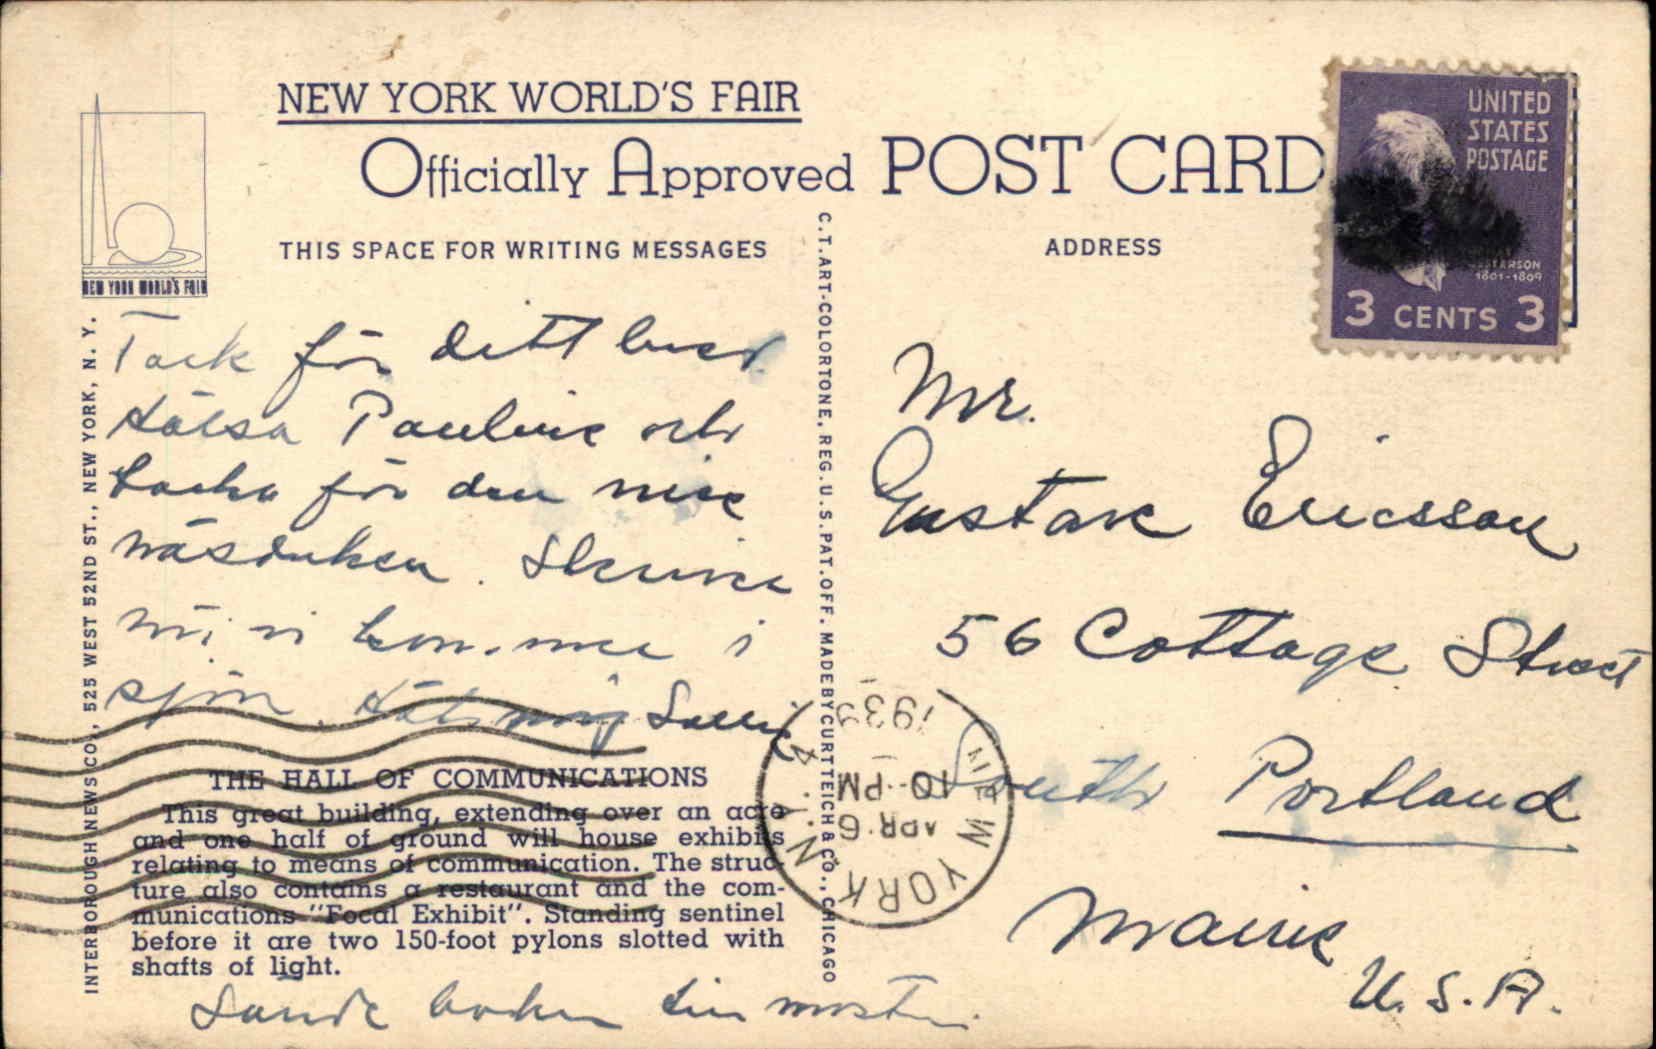 NEW YORK WORLD'S FAIR
Officially Approved POST CARD
THIS SPACE FOR WRITING MESSAGES
ADDRESS
NEW YORK WORLD'S FAIR
UNITED
STATES
POSTAGE
1801-1809
3 CENTS 3
Tack för ditt brev.
Hälsa Pauline och
tacka för den nice
näsduken. Skriver
när vi kommer i
sjön.
THE HALL OF COMMUNICATIONS
This great building, extending over an acre
and one half of ground will house exhibits
relating to means of communication. The struc-
ture also contains a restaurant and the com-
munications "Focal Exhibit". Standing sentinel
before it are two 150-foot pylons slotted with
shafts of light.
Sände boken
INTERBOROUGH NEWS CO., 525 WEST 52ND ST., NEW YORK, N. Y.
C.T. ART-COLORTONE, REG. U.S. PAT. OFF. MADE BY CURT TEICH & CO., CHICAGO
Mr.
Gustave Ericsson
56 Cottage Street
South Portland
Maine
U.S.A.
NEW YORK, N.Y.
APR 6
10-PM